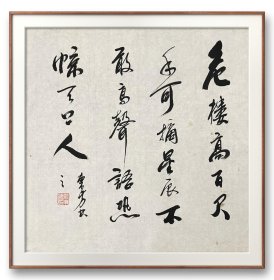 危楼高百尺
手可摘星辰不
敢高声語恐
惊天上人